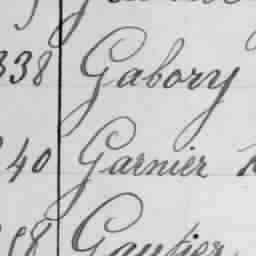 338 Gabory
40 Garnier
18 Gautier